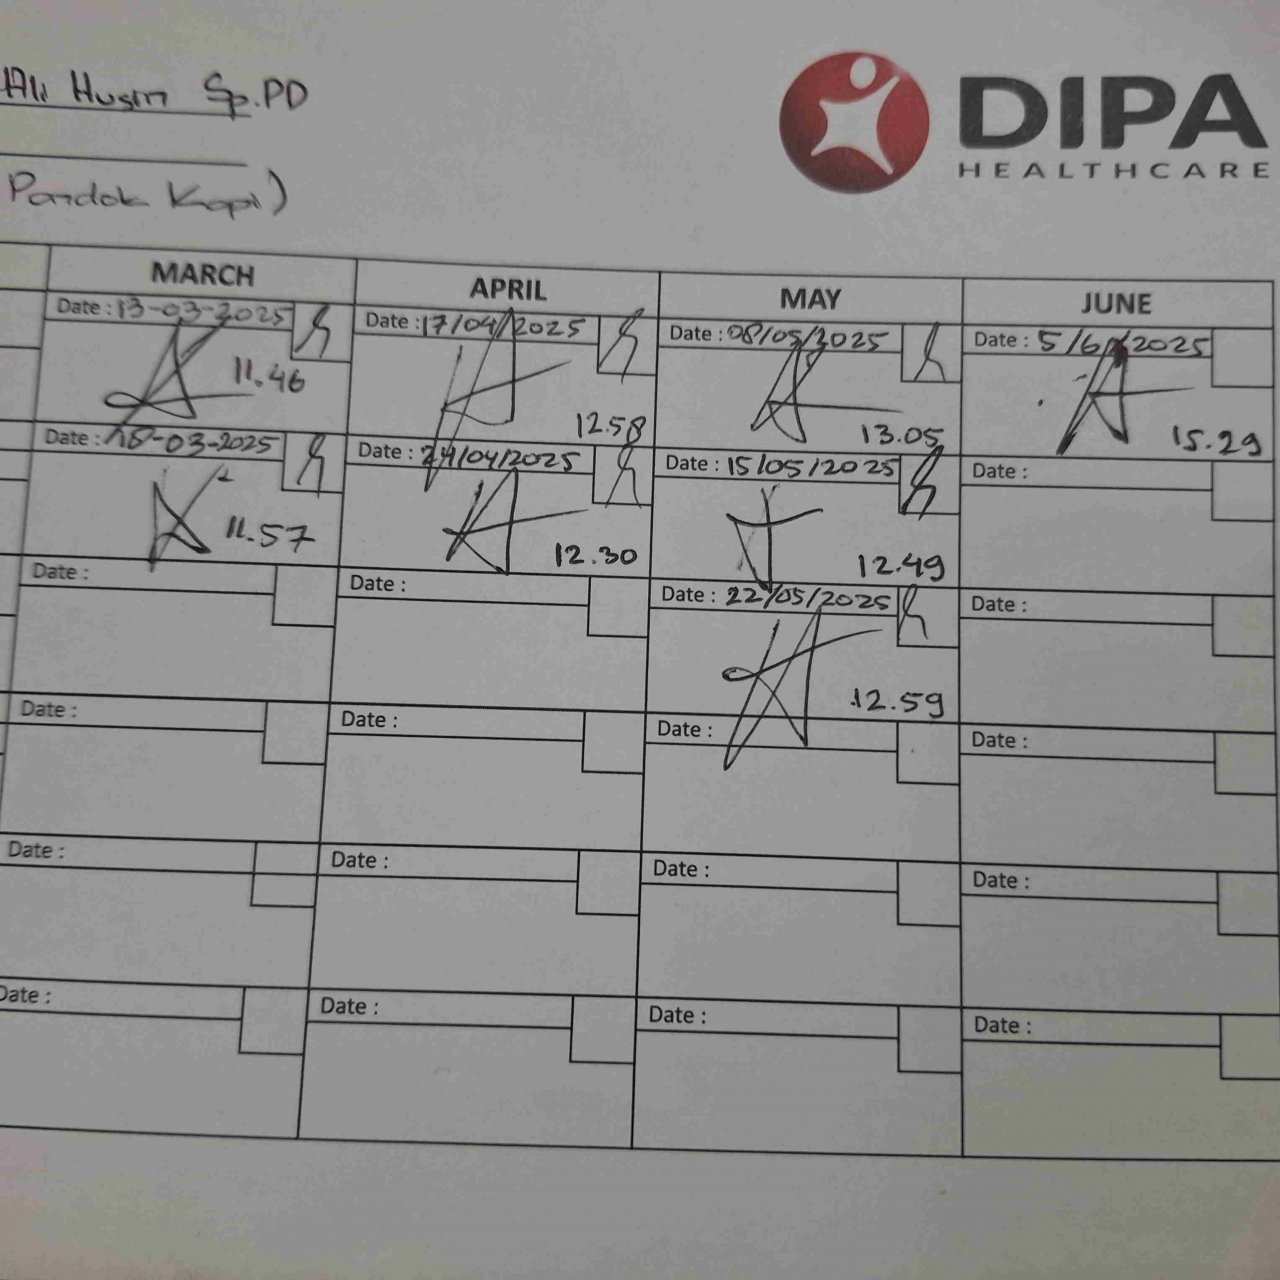 Ali Husin Sp.PD
DIPA
HEALTHCARE
Pondok Kopi)
MARCH APRIL MAY JUNE
Date : 13-03-2025 Date : 17/04/2025 Date : 08/05/2025 Date : 5/6/2025
11.46 12.58 13.05 15.29
Date : 18-03-2025 Date : 24/04/2025 Date : 15/05/2025 Date :
11.57 12.30 12.49
Date : Date : Date : 22/05/2025 Date :
12.59
Date : Date : Date : Date :
Date : Date : Date : Date :
Date : Date : Date : Date :